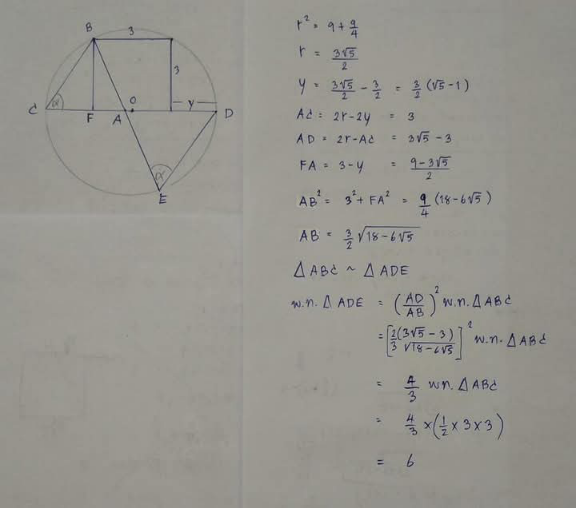 B 3
3
C α F A O y D
α
E
r² = 9 + 9/4
r = 3√5/2
y = 3√5/2 - 3/2 = 3/2 (√5 - 1)
AC = 2r - 2y = 3
AD = 2r - AC = 3√5 - 3
FA = 3 - y = (9 - 3√5)/2
AB² = 3² + FA² = 9/4 (18 - 6√5)
AB = 3/2 √(18 - 6√5)
△ABC ~ △ADE
พ.ท. △ADE = (AD/AB)² พ.ท. △ABC
= [2(3√5 - 3)/(3√(18 - 6√5))]² พ.ท. △ABC
= 4/3 พ.ท. △ABC
= 4/3 × (1/2 × 3 × 3)
= 6